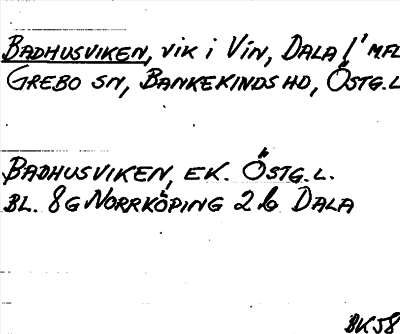 BADHUSVIKEN, VIK i Vín, DALA 1' MFL
GREBO SN, BANKEKINDS HD, ÖSTG.L
BADHUSVIKEN, EK. ÖSTG.L.
BL. 8G NORRKÖPING 2b DALA
BK58